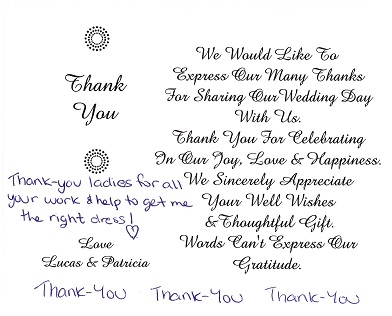 Thank
You
Thank-you ladies for all
your work & help to get me
the right dress!
Love
Lucas & Patricia
We Would Like To
Express Our Many Thanks
For Sharing Our Wedding Day
With Us.
Thank You For Celebrating
In Our Joy, Love & Happiness.
We Sincerely Appreciate
Your Well Wishes
& Thoughtful Gift.
Words Can't Express Our
Gratitude.
Thank-You Thank-You Thank-You